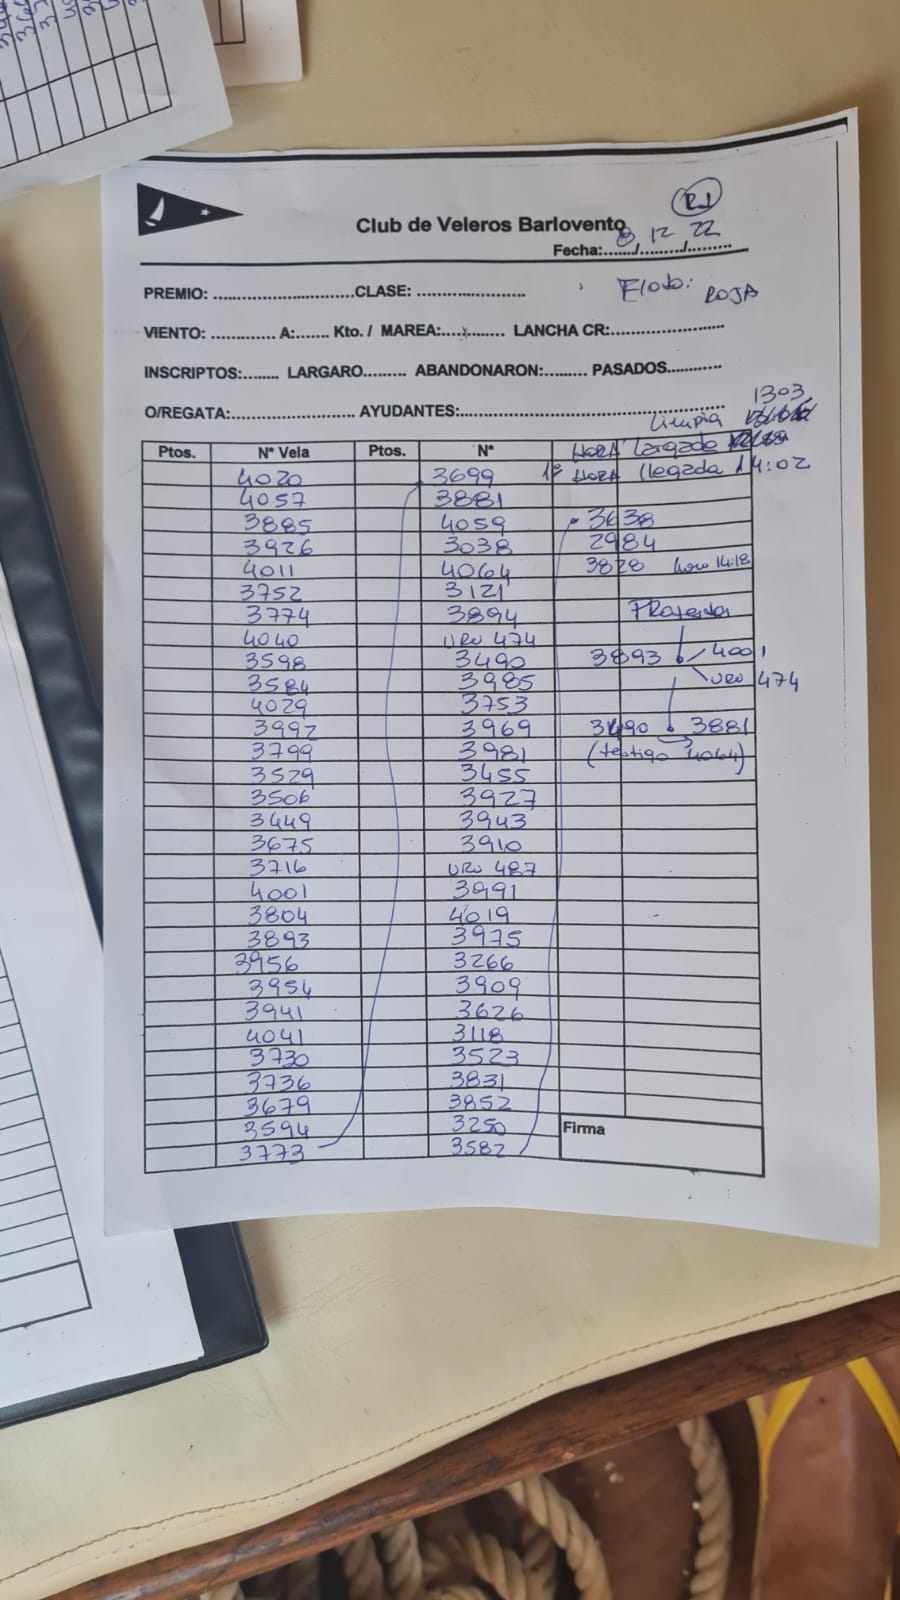 R1
Club de Veleros Barlovento
Fecha: 8/12/22
PREMIO: ............................CLASE: .....................
Flota: ROJA
VIENTO: ............. A:....... Kto. / MAREA:............ LANCHA CR:......................
INSCRIPTOS:........ LARGARO......... ABANDONARON:......... PASADOS...........
1303
O/REGATA:........................ AYUDANTES:....................................................
Limpia
Ptos. N° Vela Ptos. N° HORA largada
4020 3699 1º HORA llegada 14:02
4057 3881
3885 4059 3638
3926 3038 2984
4011 4064 3828 hora 14:18
3752 3121
3774 3894 Protestas
4040 URU 474
3598 3490 3893 4001
3584 3985 URU 474
4029 3753
3992 3969 3490 3881
3799 3981 (testigo 4064)
3529 3455
3506 3927
3449 3943
3675 3910
3716 URU 487
4001 3991
3804 4019
3893 3975
3956 3266
3954 3909
3941 3626
4041 3118
3730 3523
3736 3831
3679 3852
3594 3250 Firma
3773 3582